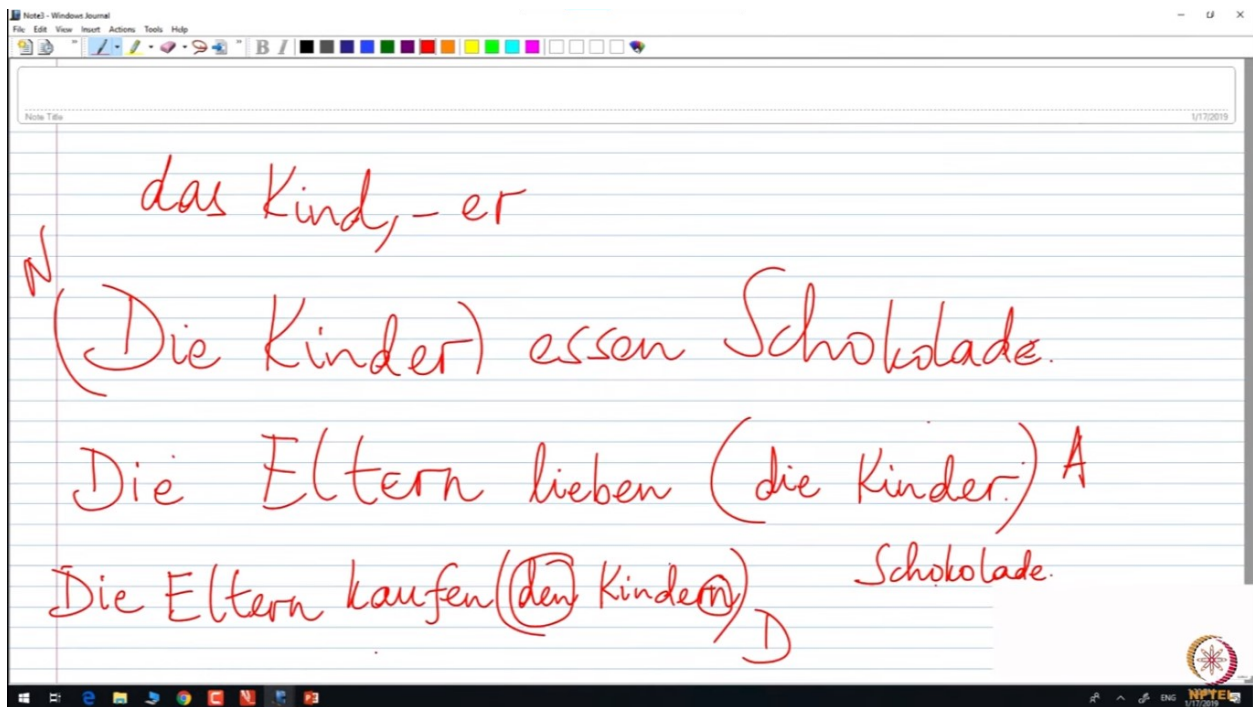 Note3 - Windows Journal
File Edit View Insert Actions Tools Help
B I
Note Title
1/17/2019
das Kind, -er
N
(Die Kinder) essen Schokolade.
Die Eltern lieben (die Kinder.) A
Die Eltern kaufen (den Kindern) D Schokolade.
ENG
1/17/2019
NPTEL